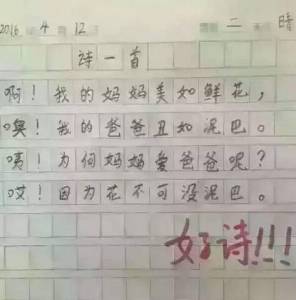 2016年4月12日 星期二 晴
诗一首
啊！我的妈妈美如鲜花，
噢！我的爸爸丑如泥巴。
咦！为何妈妈爱爸爸呢？
哎！因为花不可没泥巴。
好诗!!!